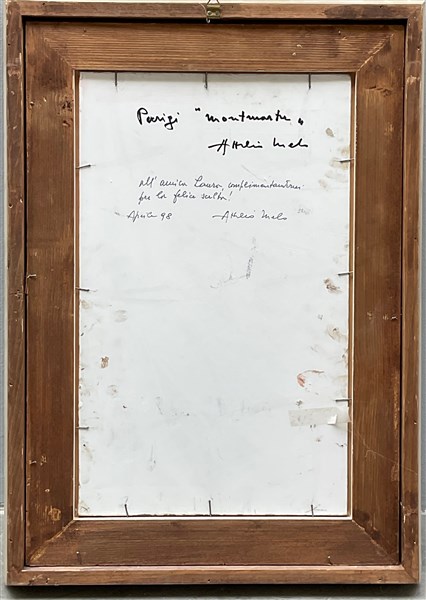 Parigi "Montmartre"
Attilio Melo
All'amica Laura, complimentandomi
per la felice scelta!
Aprile 98 Attilio Melo